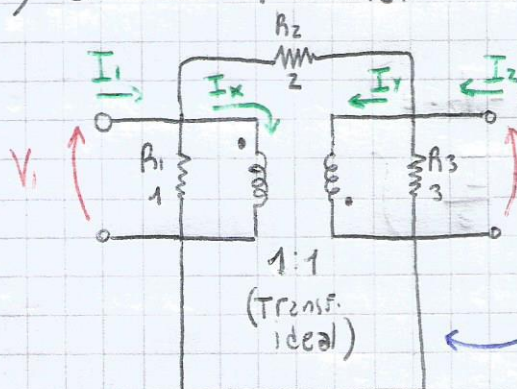 R2
2
I1
Ix
Iy
I2
V1
R1
1
R3
3
1:1
(Transf.
ideal)